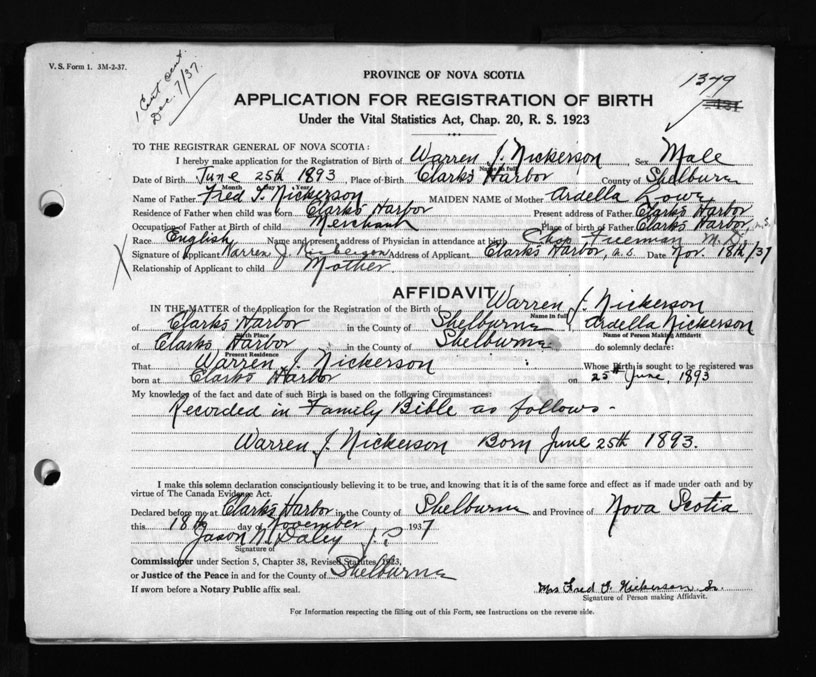 V. S. Form 1. 3M-2-37.
1 Cert sent.
Dec. 7/37.
1379
PROVINCE OF NOVA SCOTIA
APPLICATION FOR REGISTRATION OF BIRTH
Under the Vital Statistics Act, Chap. 20, R. S. 1923
TO THE REGISTRAR GENERAL OF NOVA SCOTIA:
I hereby make application for the Registration of Birth of Warren J. Nickerson Sex Male
Name in full
Date of Birth June 25th 1893 Place of Birth Clarks Harbor County of Shelburne
Month Day Year
Name of Father Fred T. Nickerson MAIDEN NAME of Mother Ardella Lowe
Residence of Father when child was born Clarks Harbor Present address of Father Clarks Harbor
Occupation of Father at Birth of child Merchant Place of birth of Father Clarks Harbor, N.S.
Race English Name and present address of Physician in attendance at birth Freeman M.D.
Signature of Applicant Warren J. Nickerson Address of Applicant Clarks Harbor, N.S. Date Nov. 18th/37
Relationship of Applicant to child Mother
AFFIDAVIT
IN THE MATTER of the Application for the Registration of the Birth of Warren J. Nickerson
Name in full
of Clarks Harbor in the County of Shelburne I, Ardella Nickerson
Birth Place Name of Person Making Affidavit
of Clarks Harbor in the County of Shelburne do solemnly declare:
Present Residence
That Warren J. Nickerson Whose Birth is sought to be registered was
born at Clarks Harbor on 25th June, 1893
My knowledge of the fact and date of such Birth is based on the following Circumstances:
Recorded in Family Bible as follows -
Warren J. Nickerson Born June 25th 1893.
I make this solemn declaration conscientiously believing it to be true, and knowing that it is of the same force and effect as if made under oath and by
virtue of The Canada Evidence Act.
Declared before me at Clarks Harbor in the County of Shelburne and Province of Nova Scotia
this 18th day of November 1937
Jason M Daley J.P.
Signature of
Commissioner under Section 5, Chapter 38, Revised Statutes 1923,
or Justice of the Peace in and for the County of Shelburne
If sworn before a Notary Public affix seal.
Mrs Fred T. Nickerson Sr.
Signature of Person making Affidavit.
For Information respecting the filling out of this Form, see Instructions on the reverse side.